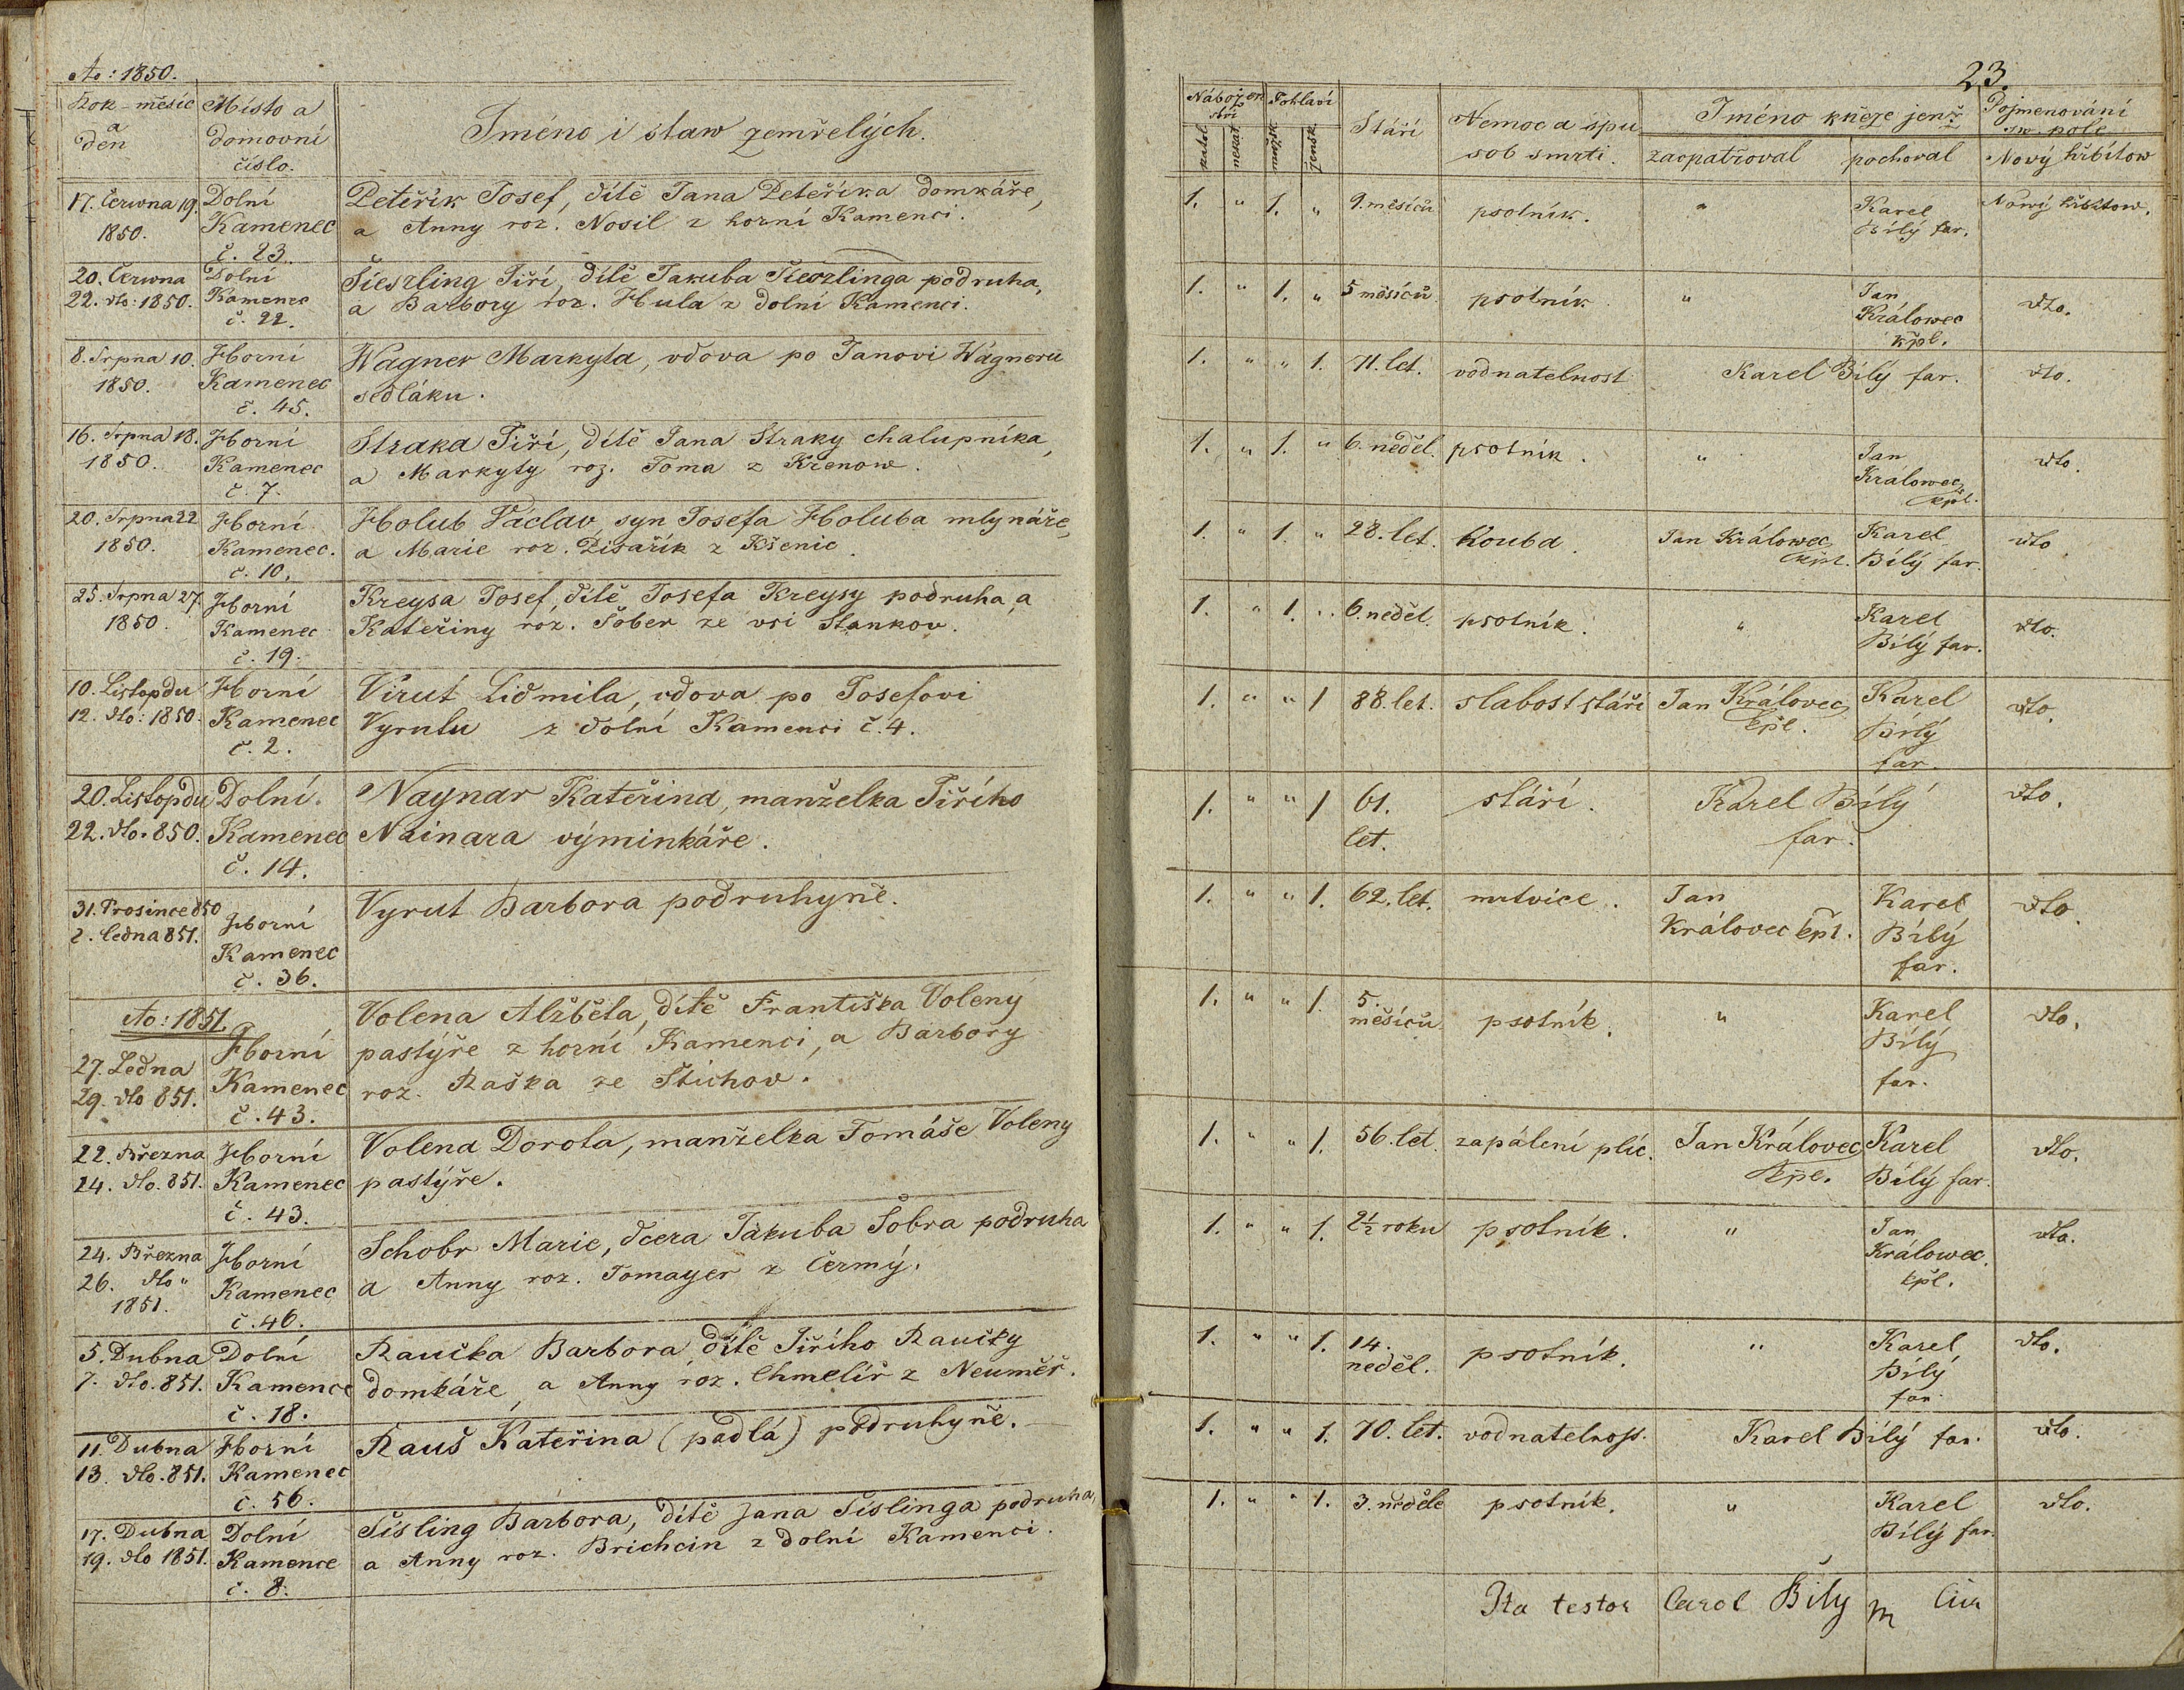 Ao: 1850.
Rok - měsíc a den
Místo a domovní číslo.
Jméno i staw zemřelých.
17. Června 19. 1850.
Dolní Kamenec č. 23.
Peteřík Josef, dítě Jana Peteříka domkáře,
a Anny roz. Nosil z horní Kamenci.
20. Června 22. dto: 1850.
Dolní Kamenec č. 22.
Šieszling Jiří, dítě Jakuba Šieszlinga podruha,
a Barbory roz. Hula z dolní Kamenci.
8. Srpna 10. 1850.
Horní Kamenec č. 45.
Wagner Markyta, vdova po Janovi Wágneru
sedláku.
16. Srpna 18. 1850.
Horní Kamenec č. 7.
Straka Jiří, dítě Jana Straky chalupníka,
a Markyty roz. Toma z Křenow.
20. Srpna 22. 1850.
Horní Kamenec. č. 10.
Holub Václav, syn Josefa Holuba mlynáře,
a Marie roz. Pisařík z Kšenic.
25. Srpna 27. 1850.
Horní Kamenec č. 19.
Kreysa Josef, dítě Josefa Kreysy podruha, a
Kateřiny roz. Šober ze vsi Stankov.
10. Listopdu 12. dto: 1850.
Horní Kamenec č. 2.
Virut Lidmila, vdova po Josefovi
Vyrutu z dolní Kamenci č. 4.
20. Listopdu 22. dto. 850.
Dolní Kamenec č. 14.
Naynar Kateřina, manželka Jiřího
Nainara výminkáře.
31. Prosince 850 2. ledna 851.
Horní Kamenec č. 36.
Vyrut Barbora podruhyně.
Ao: 1851.
27. Ledna 29. dto 851.
Horní Kamenec č. 43.
Volena Alžběta, dítě Františka Voleny
pastýře z horní Kamenci, a Barbory
roz. Raška ze Štichov.
22. Března 24. dto. 851.
Horní Kamenec č. 43.
Volena Dorota, manželka Tomáše Voleny
pastýře.
24. Března 26. dto " 1851.
Horní Kamenec č. 46.
Schobr Marie, dcera Jakuba Šobra podruha
a Anny roz. Tomayer z Čermý.
5. Dubna 7. dto. 851.
Dolní Kamence č. 18.
Raučka Barbora, dítě Jiřího Raučky
domkáře, a Anny roz. Chmelíř z Neuměř.
11. Dubna 13. dto. 851.
Horní Kamenec č. 56.
Rauš Kateřina (padlá) podruhyně.
17. Dubna 19. dto 1851.
Dolní Kamence č. 8.
Šisling Barbora, dítě Jana Šislinga podruha,
a Anny roz. Brichcin z dolní Kamenci.
23.
Nábožen ství
katol
nekat
Pohlaví
mužsk
žensk.
Stáří
Nemoc a spů sob smrti.
Jméno kněze jenž
zaopatřoval
pochoval
Pojmenování sw. pole
Nový hřbitow
1. " 1. " 9. měsíců psotník. " Karel Bílý far. Nowý hřbitow.
1. " 1. " 5 měsíců psotník " Jan Králowec kpl. dto.
1. " " 1. 71. let. vodnatelnost Karel Bílý far. dto.
1. " 1. " 6. neděl. psotník. " Jan Králowec kpl. dto.
1. " 1. " 28. let. houba. Jan Králowec kpl. Karel Bílý far. dto
1. " 1. " 6. neděl. psotník. " Karel Bílý far. dto.
1. " " 1 88. let. slabost stáři Jan Královec kpl. Karel Bílý far. dto.
1. " " 1 61. let. stáří. Karel Bílý far. dto.
1. " " 1. 62. let. mrtvice. Jan Královec kpl. Karel Bílý far. dto.
1. " " 1. 5. měsíců psotník. " Karel Bílý far. dto.
1. " " 1. 56. let. zapálení plic. Jan Královec kpl. Karel Bílý far. dto.
1. " " 1. 2½ roku psotník. " Jan Králowec. kpl. dto.
1. " " 1. 14. neděl. psotník. " Karel Bílý far. dto.
1. " " 1. 70. let. vodnatelnost. Karel Bílý far. dto.
1. " " 1. 3. neděle psotník. " Karel Bílý far. dto.
Ita testor Carol Bily